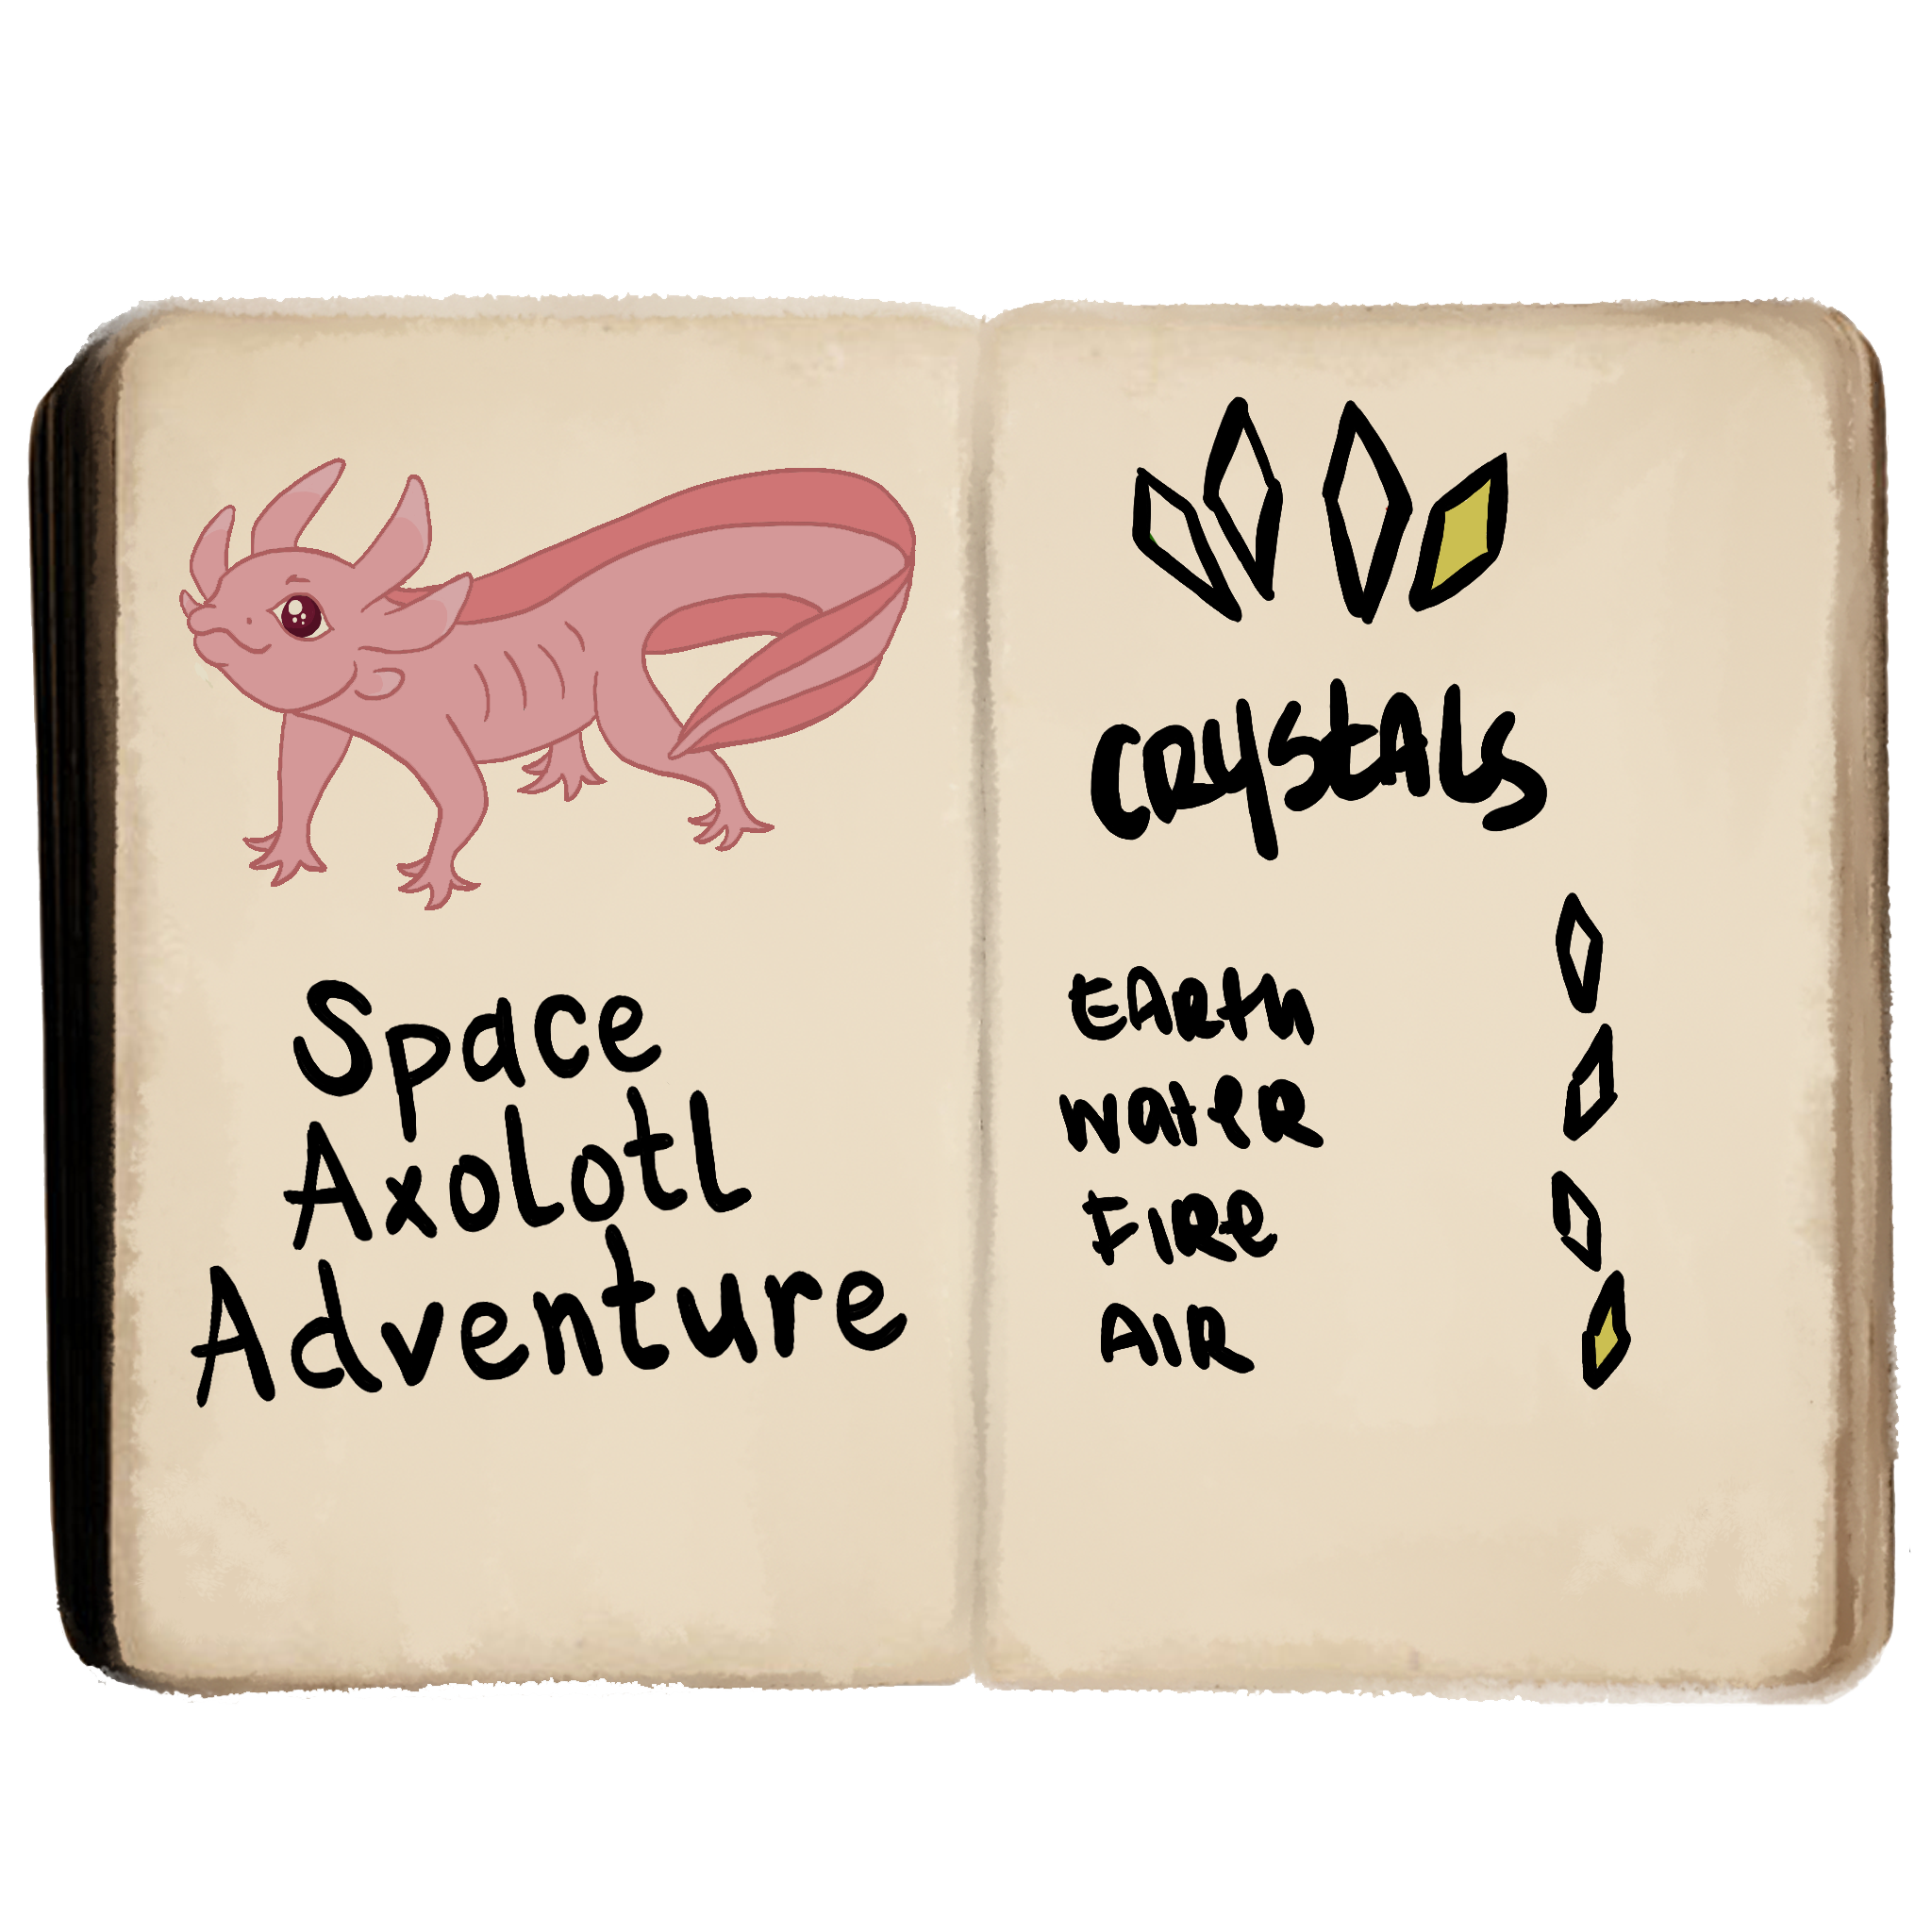 Space
Axolotl
Adventure
CRYStAls
EARth
WateR
FIRe
AIR